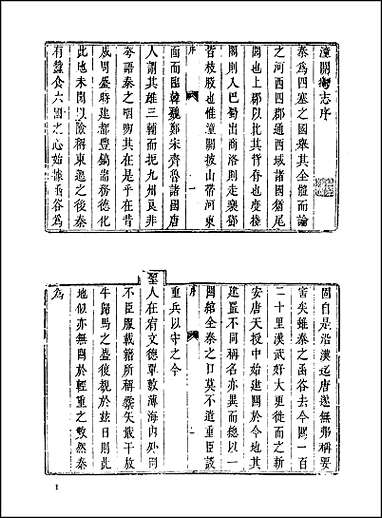 潼關衛志序
秦為四塞之國舉其全體而論
之河西四郡通西域諸國猶尾
閭也上郡以北其脊脅也度棧
閣則入巴蜀出商洛則走襄鄧
皆枝股也惟潼關披山帶河東
序
一
面而臨韓魏鄭宋齊魯諸國唐
人謂其雄三輔而扼九州良非
夸語秦之咽喉其在是乎在昔
成周盛時建都豐鎬諸務德化
此地未聞以險稱東遷之後秦
有蠶食六國之心始據函谷為
固自是沿漢迄唐遂無弗稱要
害矣雖秦之函谷去今關一百
二十里漢武好大更徙而之新
安唐天授中始建關於今地其
建置不同稱名亦異而總以一
關綰全秦之口莫不遣重臣設
序
重兵以守之今
聖人在宥文德覃敷薄海內外罔
不臣服載籍所稱櫜矢戢干放
牛歸馬之盛復親於茲日則此
地似亦無關於輕重之數然秦
為
1